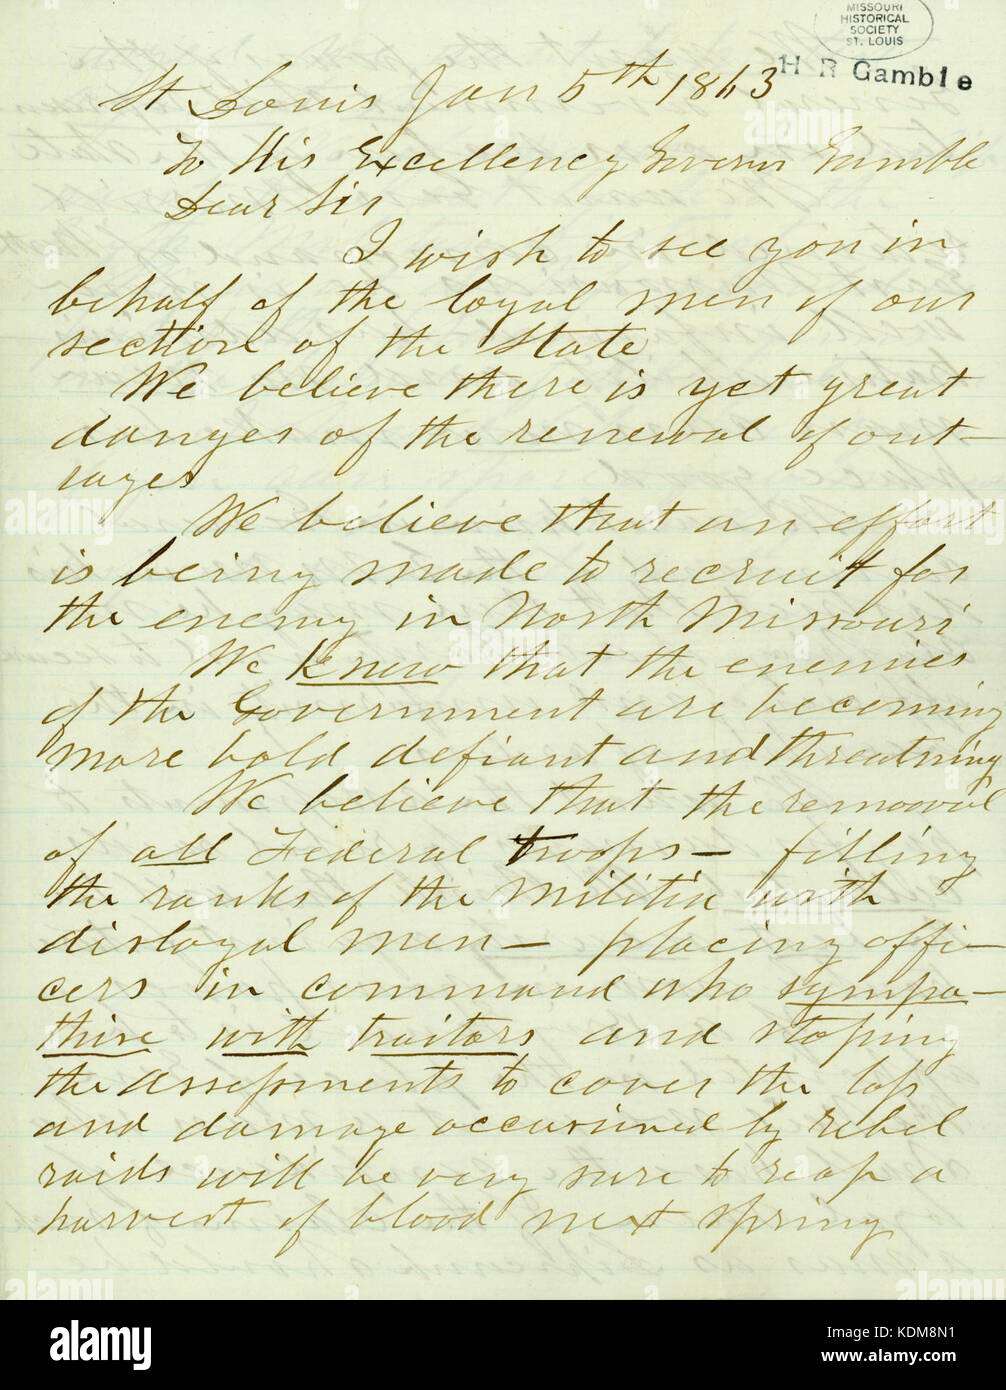 MISSOURI
HISTORICAL
SOCIETY
ST. LOUIS
H R Gamble
St Louis Jan 5th 1863
To His Excellency Govern Gamble
Dear Sir
I wish to see you in
behalf of the loyal men of our
section of the State
We believe there is yet great
danger of the renewal of out-
rages
We believe that an effort
is being made to recruit for
the enemy in North Missouri
We know that the enemies
of the Government are becoming
more bold defiant and threatning
We believe that the removal
of all Federal troops— filling
the ranks of the Militia with
disloyal men— placing offi-
cers in command who sympa-
thise with traitors and stoping
the assessments to cover the loss
and damage occasioned by rebel
raids will be very sure to reap a
harvest of blood next spring
alamy
Image ID: KDM8N1
www.alamy.com